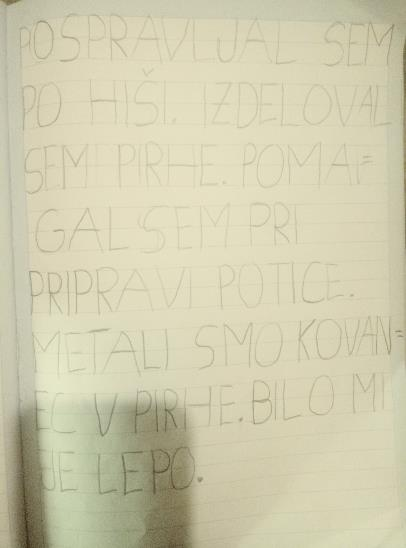 POSPRAVLJAL SEM
PO HIŠI. IZDELOVAL
SEM PIRHE. POMA=
GAL SEM PRI
PRIPRAVI POTICE.
METALI SMO KOVAN=
EC V PIRHE. BILO MI
JE LEPO.